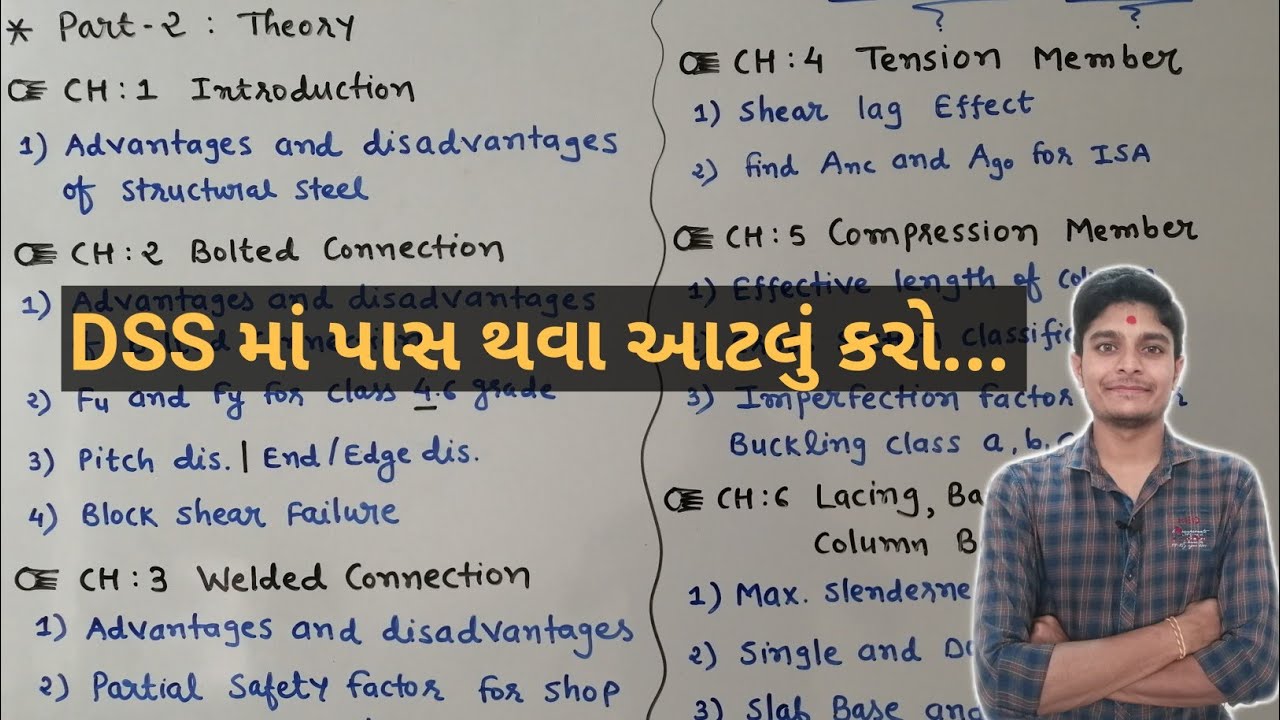 * Part-2 : Theory
CH : 1 Introduction
1) Advantages and disadvantages
of structural steel
CH : 2 Bolted Connection
1) Advantages and disadvantages
2) Fu and Fy for class 4.6 grade
3) Pitch dis. | End/Edge dis.
4) Block shear Failure
CH : 3 Welded Connection
1) Advantages and disadvantages
2) Partial Safety factor for shop
? ?
CH : 4 Tension Member
1) Shear lag Effect
2) find Anc and Ago for ISA
CH : 5 Compression Member
1) Effective length of
3) Imperfection factor
Buckling class a, b,
CH : 6 Lacing,
Column
1) Max.
2) Single and
3) Slab Base
DSS માં પાસ થવા આટલું કરો...